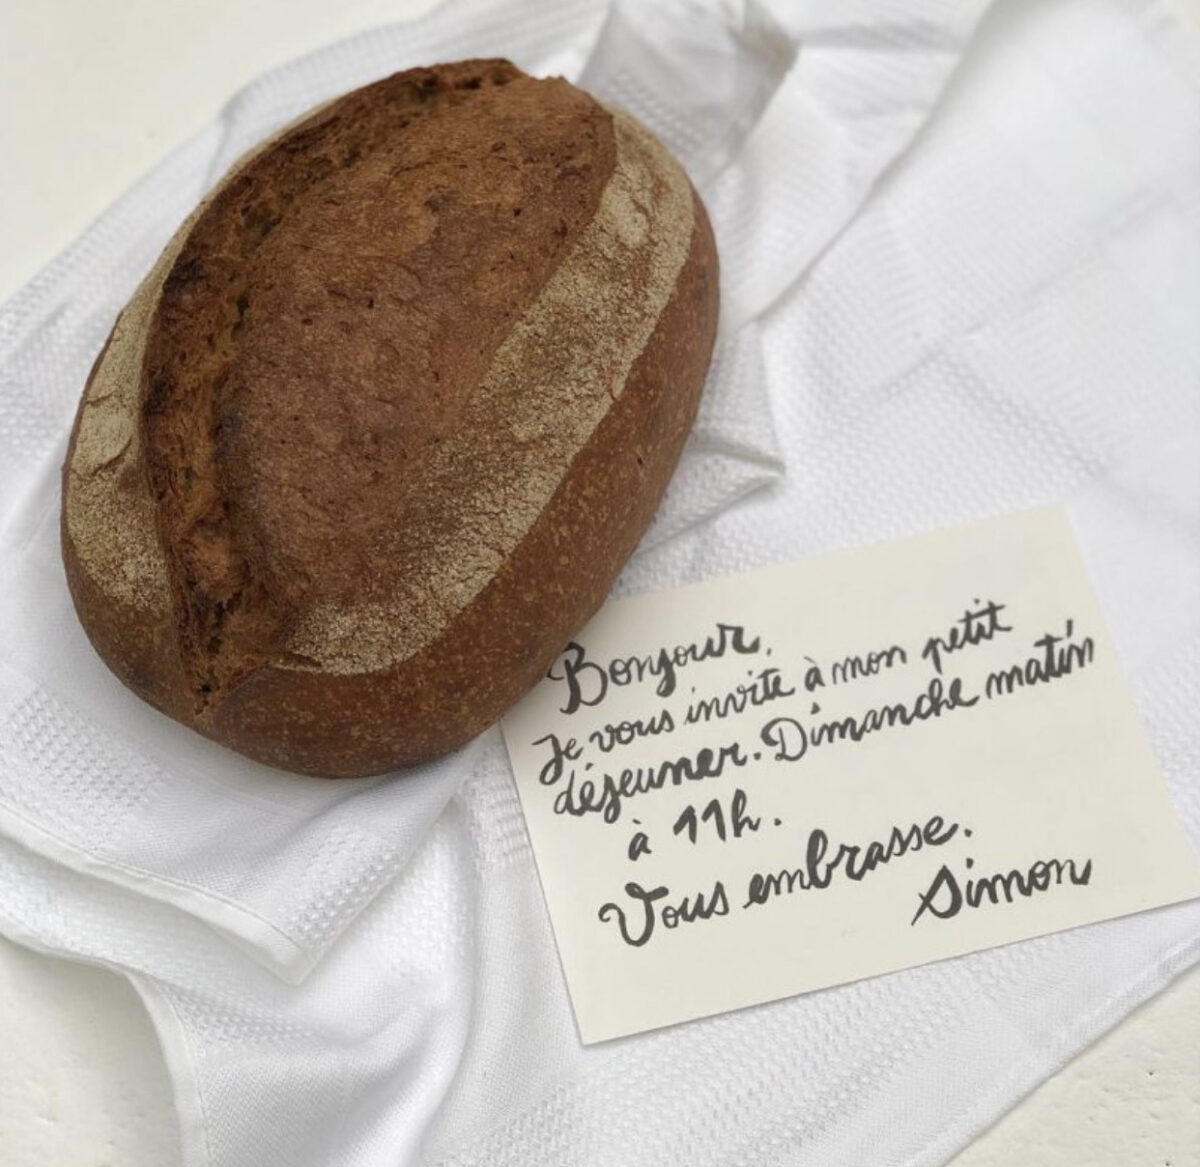 Bonjour,
Je vous invite à mon petit
déjeuner. Dimanche matin
à 11h.
Vous embrasse.
Simon